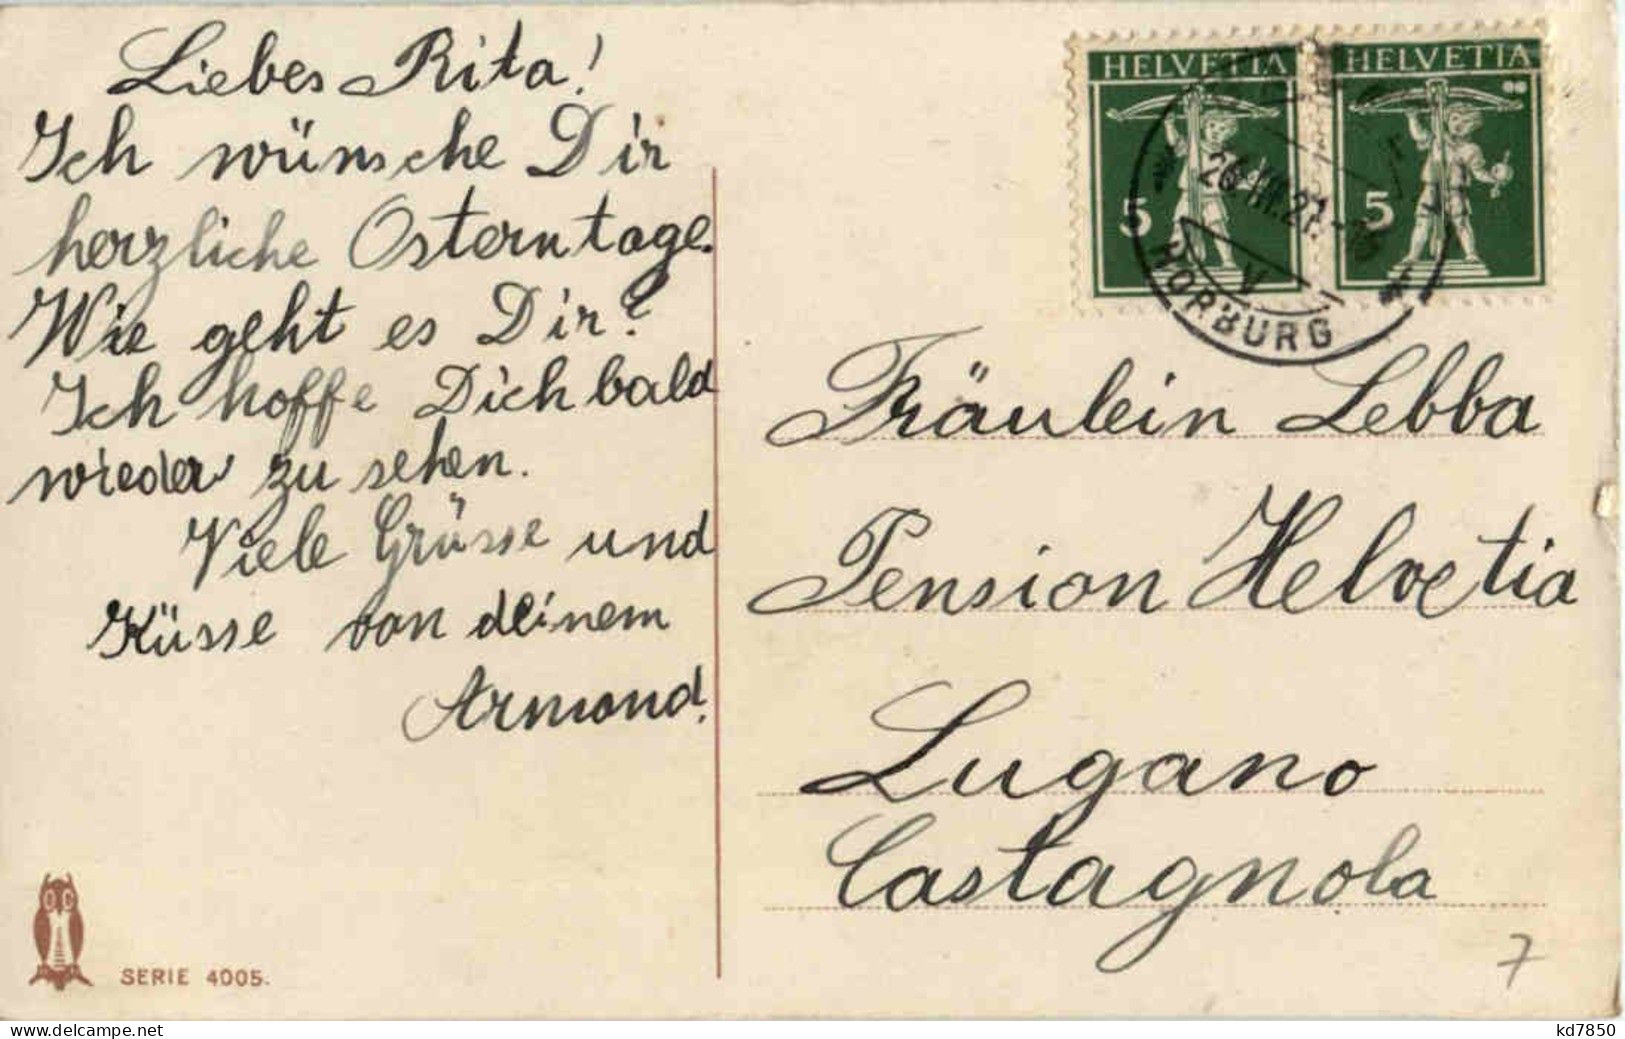 Liebes Rita!
Ich wünsche Dir
herzliche Osterntage.
Wie geht es Dir?
Ich hoffe Dich bald
wieder zu sehen.
Viele Grüsse und
Küsse von deinem
Armand.
SERIE 4005.
HELVETIA
5
HELVETIA
5
HORBURG
Fräulein Lebba
Pension Helvetia
Lugano
Castagnola
7
kd7850